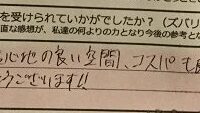 を受けられていかがでしたか？（ズバリ
直な感想が、私達の何よりの力となり今後の参考とな
心地の良い空間、コスパも
うございます!!